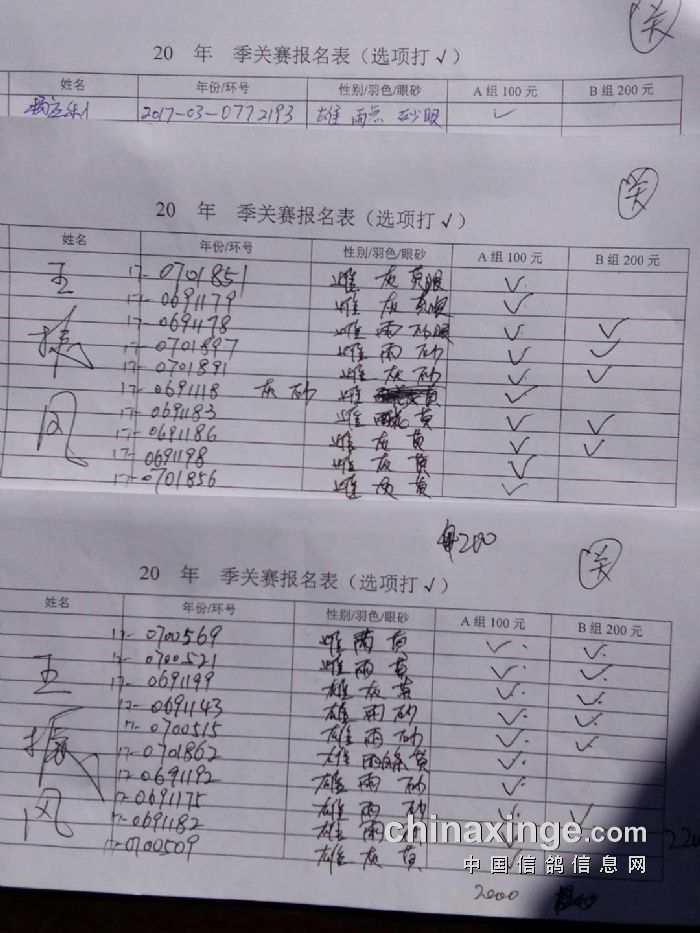 关
20 年 季关赛报名表（选项打√）
姓名 年份/环号 性别/羽色/眼砂 A组100元 B组200元
2017-03-0772193 雄 雨点 砂眼 √
关
20 年 季关赛报名表（选项打√）
姓名 年份/环号 性别/羽色/眼砂 A组100元 B组200元
王振风
17-0701851 雌 灰 黄眼 √
17-0691179 雌 灰 黄眼 √
17-0691178 雌 雨 砂眼 √ √
17-0701897 雌 雨 砂 √ √
17-0701891 雌 灰 砂 √ √
17-0691118 灰 砂 雌 黄 √
17-0691183 雌 黄 √ √
17-0691186 雌 灰 黄 √ √
17-0691198 雌 灰 黄 √
17-0701856 雌 黄 √
200
关
20 年 季关赛报名表（选项打√）
姓名 年份/环号 性别/羽色/眼砂 A组100元 B组200元
王振风
17-0700569 雌 雨 黄 √ √
17-0700521 雌 雨 黄 √ √
17-0691199 雄 灰 黄 √ √
17-0691143 雄 雨 砂 √ √
17-0700515 雄 雨 砂 √ √
17-0701862 雄 雨白条 黄 √
17-0691192 雄 雨 砂 √
17-0691175 雄 雨 砂 √ √
17-0691182 雄 雨 √
17-0700509 雄 灰 黄 √
chinaxinge.com
中国信鸽信息网
2000